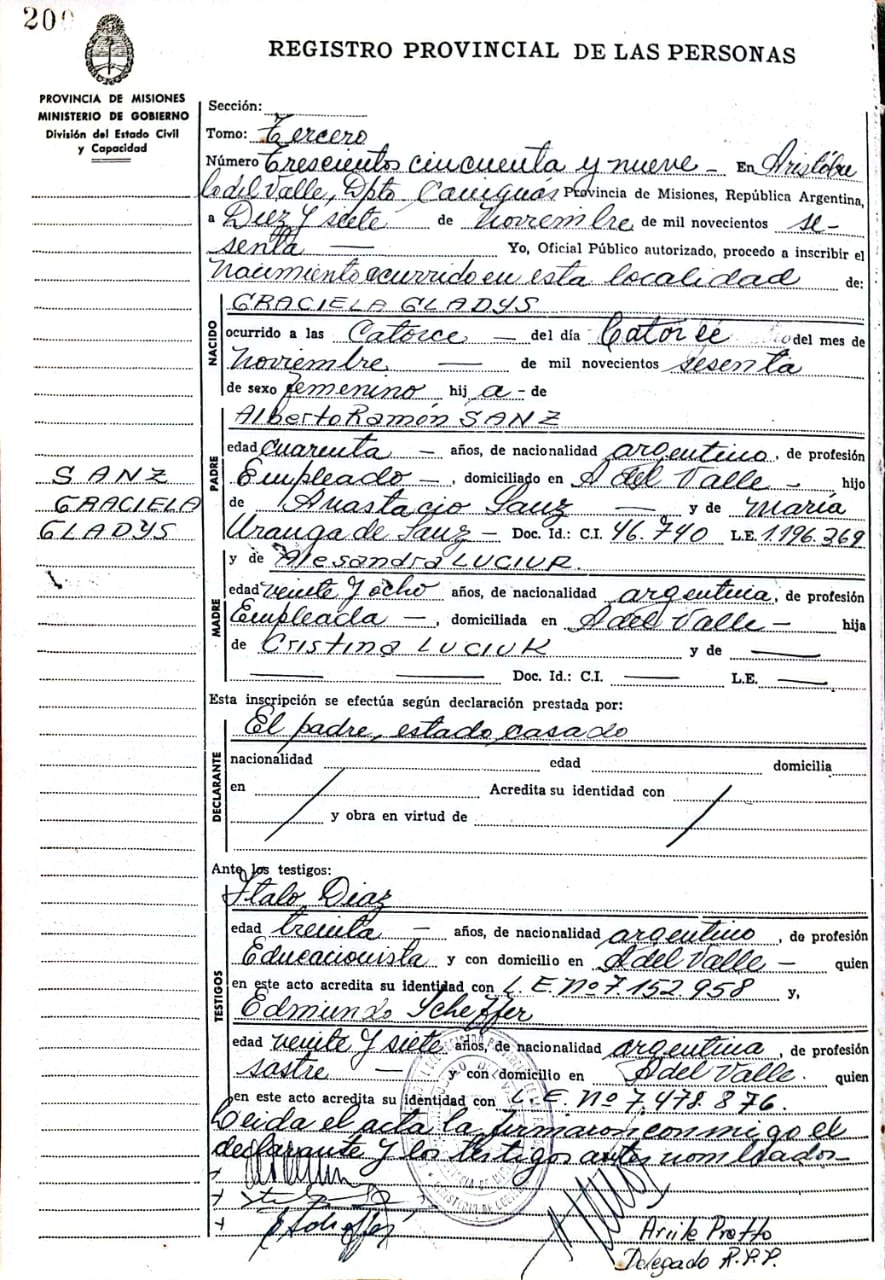 200
REGISTRO PROVINCIAL DE LAS PERSONAS
PROVINCIA DE MISIONES
MINISTERIO DE GOBIERNO
División del Estado Civil
y Capacidad
Sección:
Tomo: Tercero
Número Trescientos cincuenta y nueve - En Aristóbu
lo del Valle, Dpto Cainguás Provincia de Misiones, República Argentina,
a Diez y siete de Noviembre de mil novecientos se-
senta — Yo, Oficial Público autorizado, procedo a inscribir el
Nacimiento ocurrido en esta localidad de:
NACIDO
GRACIELA GLADYS
ocurrido a las Catorce — del día Catorce del mes de
Noviembre — de mil novecientos sesenta
de sexo femenino hij a - de
Alberto Ramón SANZ
SANZ
GRACIELA
GLADYS
PADRE
edad cuarenta - años, de nacionalidad argentino, de profesión
Empleado -, domiciliado en A del Valle - hijo
de Anastacio Sanz — y de María
Uranga de Sanz - Doc. Id.: C.I. 46.740 L.E. 1.196.369
y de Alesandra LUCIUK.
MADRE
edad veinte y ocho años, de nacionalidad argentina, de profesión
Empleada -, domiciliada en A del Valle - hija
de Cristina LUCIUK y de —
— — Doc. Id.: C.I. — L.E. —
Esta inscripción se efectúa según declaración prestada por:
El padre, estado casado
DECLARANTE
nacionalidad edad domicilia
en Acredita su identidad con
y obra en virtud de
Ante los testigos:
Italo Diaz
TESTIGOS
edad treinta - años, de nacionalidad argentino, de profesión
Educacionista y con domicilio en A del Valle - quien
en este acto acredita su identidad con L.E. Nº 7.152.958 y,
Edmundo Scheffer
edad veinte y siete años, de nacionalidad argentina, de profesión
sastre - y con domicilio en A del Valle. quien
en este acto acredita su identidad con L.E. Nº 7.478.876.
Leida el acta la firmaron conmigo el
declarante y los testigos antes nombrados-
E Scheffer
Protto
Delegado R.P.P.